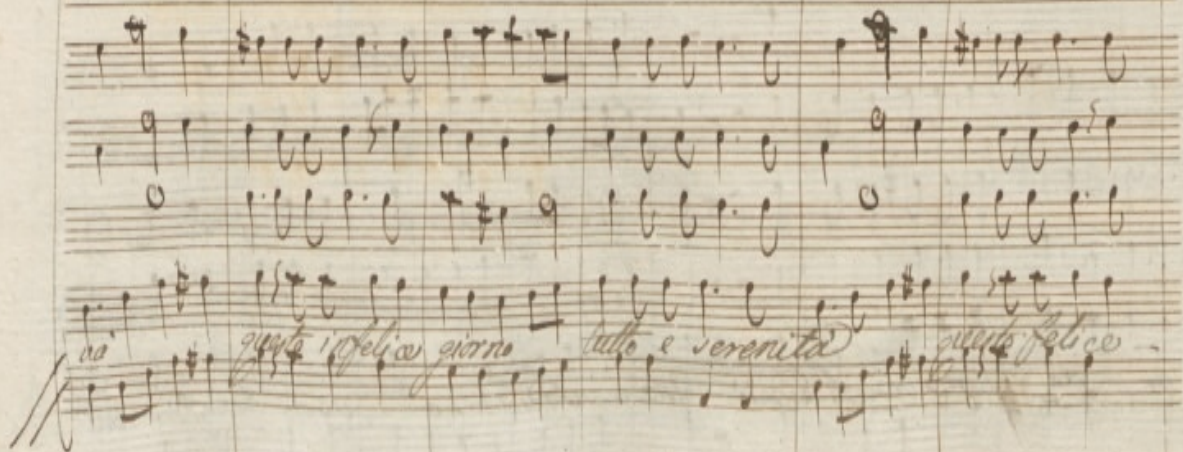 va questo infelice giorno tutto e serenità questo felice